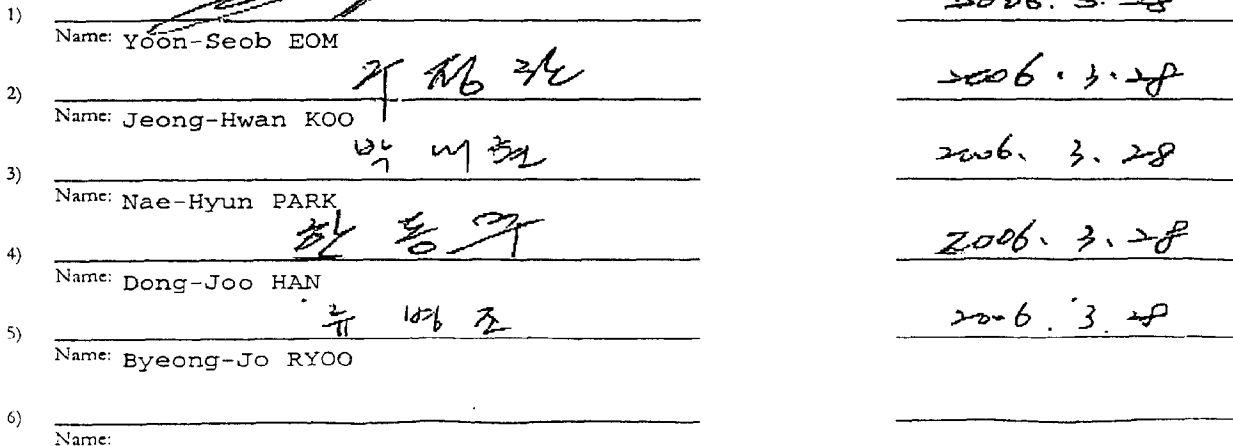 1) 2006. 3. 28
Name: Yoon-Seob EOM
2) 구정환 2006. 3. 28
Name: Jeong-Hwan KOO
3) 박내현 2006. 3. 28
Name: Nae-Hyun PARK
4) 한동주 2006. 3. 28
Name: Dong-Joo HAN
5) 류병조 2006. 3. 28
Name: Byeong-Jo RYOO
6)
Name: